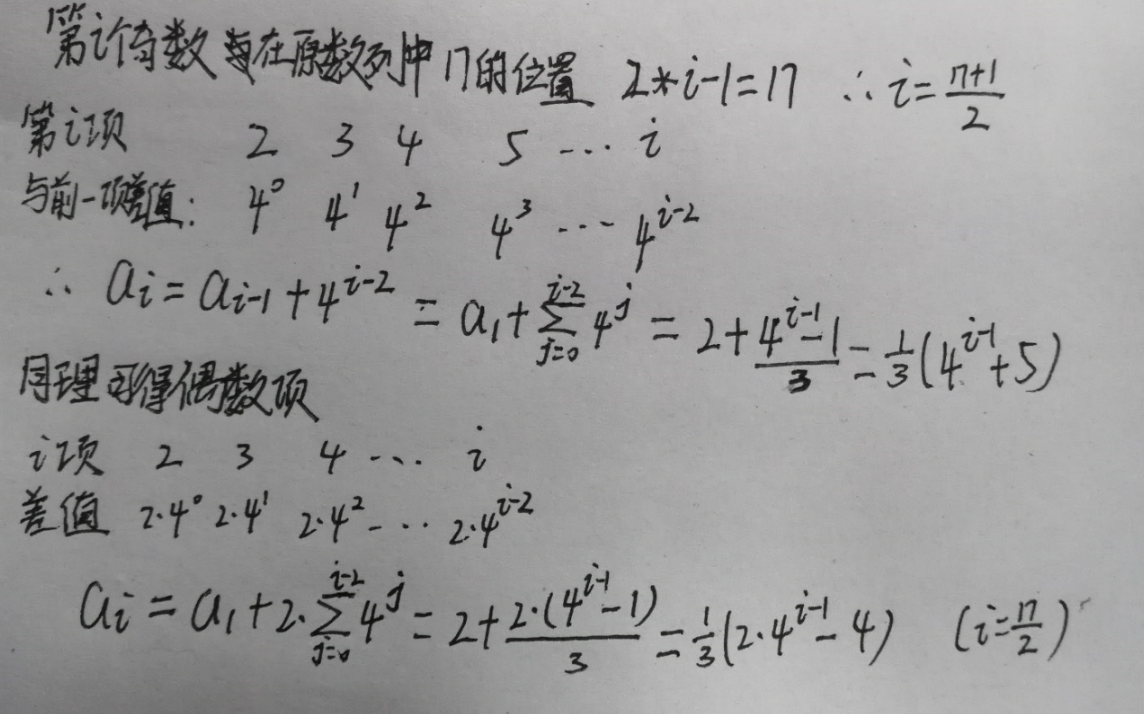 第i个奇数与在原数列中n的位置 2*i-1=n ∴i=\frac{n+1}{2}
第i项 2 3 4 5 … i
与前一项差值: 4^0 4^1 4^2 4^3 … 4^{i-2}
∴ a_i=a_{i-1}+4^{i-2}=a_1+\sum_{j=0}^{i-2}4^j=2+\frac{4^{i-1}-1}{3}=\frac{1}{3}(4^{i-1}+5)
同理可得偶数项
i项 2 3 4 … i
差值 2·4^0 2·4^1 2·4^2 … 2·4^{i-2}
a_i=a_1+2·\sum_{j=0}^{i-2}4^j=2+\frac{2·(4^{i-1}-1)}{3}=\frac{1}{3}(2·4^{i-1}-4) (i=\frac{n}{2})